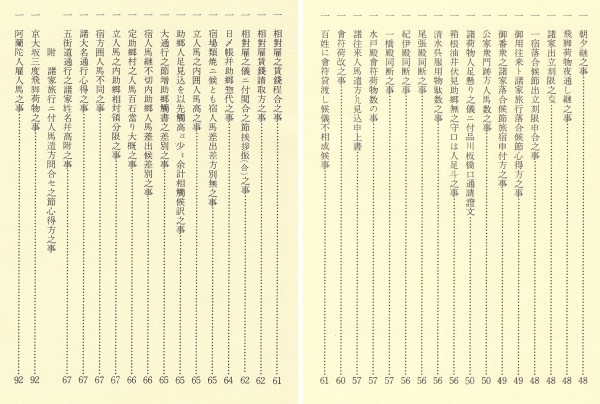 一 朝夕継之事 48
一 飛脚荷物夜通し継之事 48
一 諸家出立刻限之事 48
一 一宿落合候節出立刻限申合之事 48
一 御用往來ト諸家旅行落合候節心得方之事 49
一 御番衆之諸家落合候節旅宿申付方之事 49
一 公家衆門跡方人馬數之事 50
一 諸荷物人足懸りの儀ニ付品川板橋口通請證文 50
一 箱根油井伏見助郷無之守口は人足斗之事 56
一 清水呉服用物駄數之事 56
一 尾張殿同斷之事 56
一 紀伊殿同斷之事 56
一 一橋殿同斷之事 57
一 水戸殿會符荷物數の事 57
一 諸往來人馬遣方ニ付見込申上書 57
一 會符改之事 60
一 百姓に會符貸渡し候儀不相成候事 61
一 相對雇之賃錢程合之事 61
一 相對雇賃錢請取方之事 62
一 相對雇之儀ニ付問合之節挨拶振(合)之事 62
一 日〆帳幷助郷惣代之事 64
一 宿場類燒ニ候とも宿人馬差出方別無之事 65
一 立人馬之内囲人馬高之事 65
一 助郷人足見込を以先觸高ニ少々余計相觸候訳之事 65
一 大通行之節增助郷觸書之差別之事 65
一 宿人馬継不切内助郷人馬差出候差別之事 66
一 定助郷村之人馬百石當り大概之事 66
一 立人馬之内助郷相對領分限之事 67
一 宿方囲人馬不同之事 67
一 諸大名通行心得之事 67
一 五街道通行之諸家姓名幷高附之事 67
附 諸家旅行ニ付人馬遣方問合セ之節心得方之事
一 京大坂三度飛脚荷物之事 92
一 阿蘭陀人雇人馬之事 92